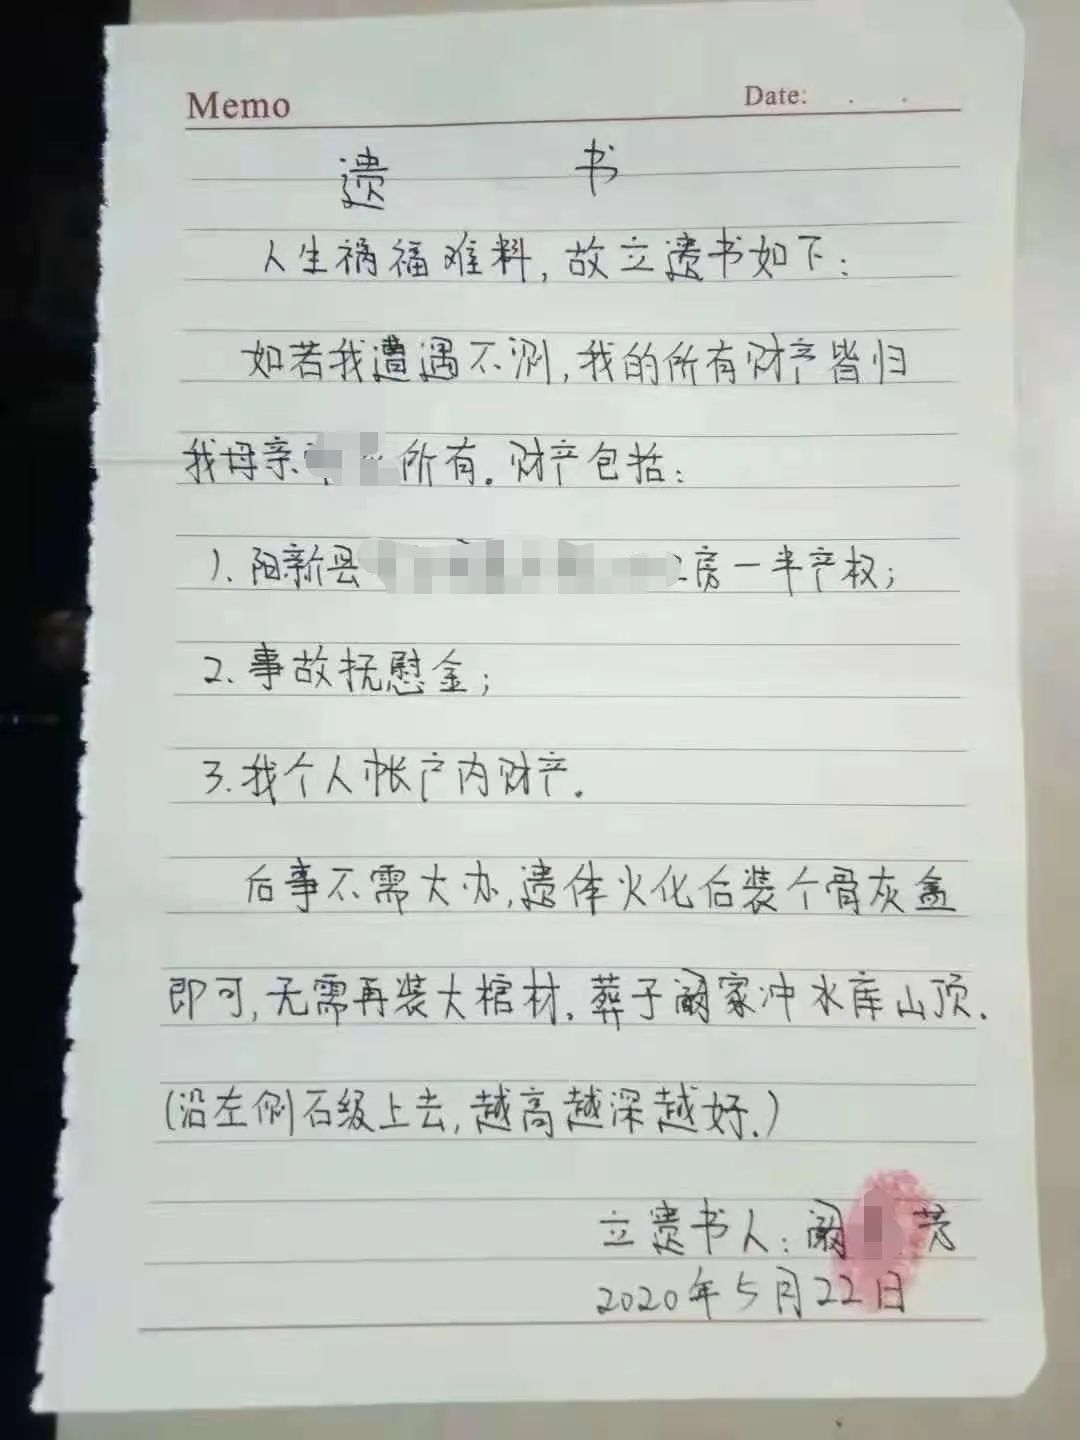 Memo
Date: . .
遗 书
人生祸福难料,故立遗书如下:
如若我遭遇不测,我的所有财产皆归
我母亲 所有。财产包括:
1. 阳新县 房一半产权;
2. 事故抚慰金;
3. 我个人帐户内财产.
后事不需大办,遗体火化后装个骨灰盒
即可,无需再装大棺材.葬于阚家冲水库山顶.
(沿左侧石级上去,越高越深越好.)
立遗书人: 阚 芳
2020年5月22日